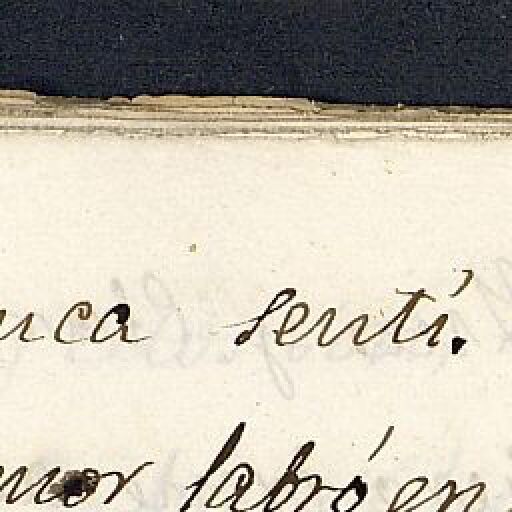 uca sentí.
mor labró en